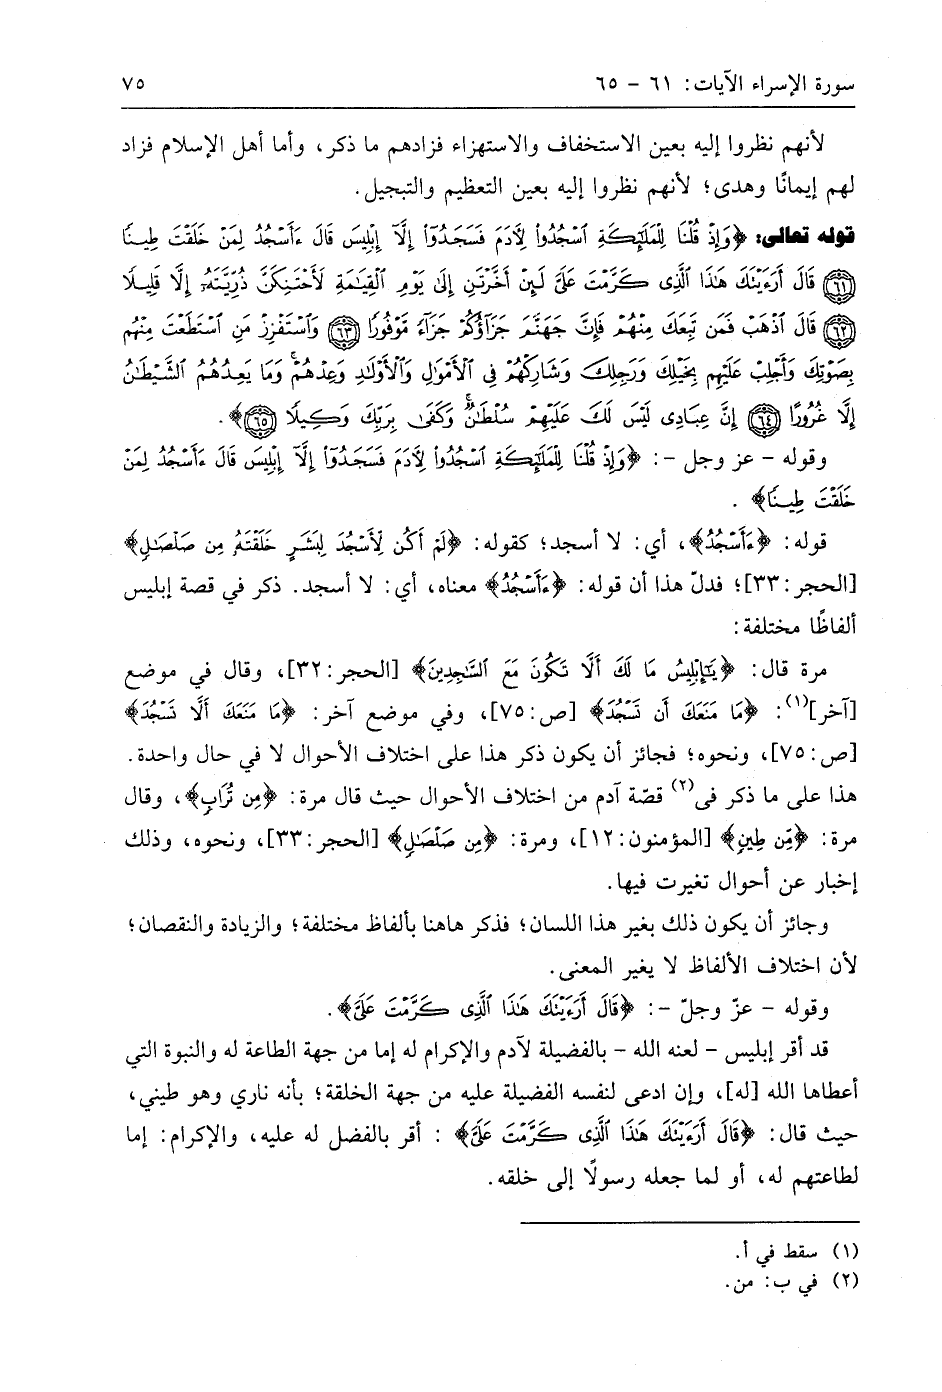 سورة الإسراء الآيات: ٦١ - ٦٥ ٧٥
لأنهم نظروا إليه بعين الاستخفاف والاستهزاء فزادهم ما ذكر، وأما أهل الإسلام فزاد
لهم إيمانًا وهدى؛ لأنهم نظروا إليه بعين التعظيم والتبجيل.
قوله تعالى: ﴿وَإِذْ قُلْنَا لِلْمَلَٰٓئِكَةِ ٱسْجُدُوا۟ لِءَادَمَ فَسَجَدُوٓا۟ إِلَّآ إِبْلِيسَ قَالَ ءَأَسْجُدُ لِمَنْ خَلَقْتَ طِينًا
﴿٦١﴾ قَالَ أَرَءَيْتَكَ هَٰذَا ٱلَّذِى كَرَّمْتَ عَلَىَّ لَئِنْ أَخَّرْتَنِ إِلَىٰ يَوْمِ ٱلْقِيَٰمَةِ لَأَحْتَنِكَنَّ ذُرِّيَّتَهُۥٓ إِلَّا قَلِيلًا
﴿٦٢﴾ قَالَ ٱذْهَبْ فَمَن تَبِعَكَ مِنْهُمْ فَإِنَّ جَهَنَّمَ جَزَآؤُكُمْ جَزَآءً مَّوْفُورًا ﴿٦٣﴾ وَٱسْتَفْزِزْ مَنِ ٱسْتَطَعْتَ مِنْهُم
بِصَوْتِكَ وَأَجْلِبْ عَلَيْهِم بِخَيْلِكَ وَرَجِلِكَ وَشَارِكْهُمْ فِى ٱلْأَمْوَٰلِ وَٱلْأَوْلَٰدِ وَعِدْهُمْ ۚ وَمَا يَعِدُهُمُ ٱلشَّيْطَٰنُ
إِلَّا غُرُورًا ﴿٦٤﴾ إِنَّ عِبَادِى لَيْسَ لَكَ عَلَيْهِمْ سُلْطَٰنٌ ۚ وَكَفَىٰ بِرَبِّكَ وَكِيلًا ﴿٦٥﴾﴾.
وقوله - عز وجل -: ﴿وَإِذْ قُلْنَا لِلْمَلَٰٓئِكَةِ ٱسْجُدُوا۟ لِءَادَمَ فَسَجَدُوٓا۟ إِلَّآ إِبْلِيسَ قَالَ ءَأَسْجُدُ لِمَنْ
خَلَقْتَ طِينًا﴾.
قوله: ﴿ءَأَسْجُدُ﴾، أي: لا أسجد؛ كقوله: ﴿لَمْ أَكُن لِّأَسْجُدَ لِبَشَرٍ خَلَقْتَهُۥ مِن صَلْصَٰلٍ﴾
[الحجر: ٣٣]؛ فدلّ هذا أن قوله: ﴿ءَأَسْجُدُ﴾ معناه، أي: لا أسجد. ذكر في قصة إبليس
ألفاظًا مختلفة:
مرة قال: ﴿يَٰٓإِبْلِيسُ مَا لَكَ أَلَّا تَكُونَ مَعَ ٱلسَّٰجِدِينَ﴾ [الحجر: ٣٢]، وقال في موضع
[آخر](١): ﴿مَا مَنَعَكَ أَن تَسْجُدَ﴾ [ص: ٧٥]، وفي موضع آخر: ﴿مَا مَنَعَكَ أَلَّا تَسْجُدَ﴾
[ص: ٧٥]، ونحوه؛ فجائز أن يكون ذكر هذا على اختلاف الأحوال لا في حال واحدة.
هذا على ما ذكر فى(٢) قصّة آدم من اختلاف الأحوال حيث قال مرة: ﴿مِن تُرَابٍ﴾، وقال
مرة: ﴿مِّن طِينٍ﴾ [المؤمنون: ١٢]، ومرة: ﴿مِن صَلْصَٰلٍ﴾ [الحجر: ٣٣]، ونحوه، وذلك
إخبار عن أحوال تغيرت فيها.
وجائز أن يكون ذلك بغير هذا اللسان؛ فذكر هاهنا بألفاظ مختلفة؛ والزيادة والنقصان؛
لأن اختلاف الألفاظ لا يغير المعنى.
وقوله - عزّ وجلّ -: ﴿قَالَ أَرَءَيْتَكَ هَٰذَا ٱلَّذِى كَرَّمْتَ عَلَىَّ﴾.
قد أقر إبليس - لعنه الله - بالفضيلة لآدم والإكرام له إما من جهة الطاعة له والنبوة التي
أعطاها الله [له]، وإن ادعى لنفسه الفضيلة عليه من جهة الخلقة؛ بأنه ناري وهو طيني،
حيث قال: ﴿قَالَ أَرَءَيْتَكَ هَٰذَا ٱلَّذِى كَرَّمْتَ عَلَىَّ﴾ : أقر بالفضل له عليه، والإكرام: إما
لطاعتهم له، أو لما جعله رسولًا إلى خلقه.
(١) سقط في أ.
(٢) في ب: من.